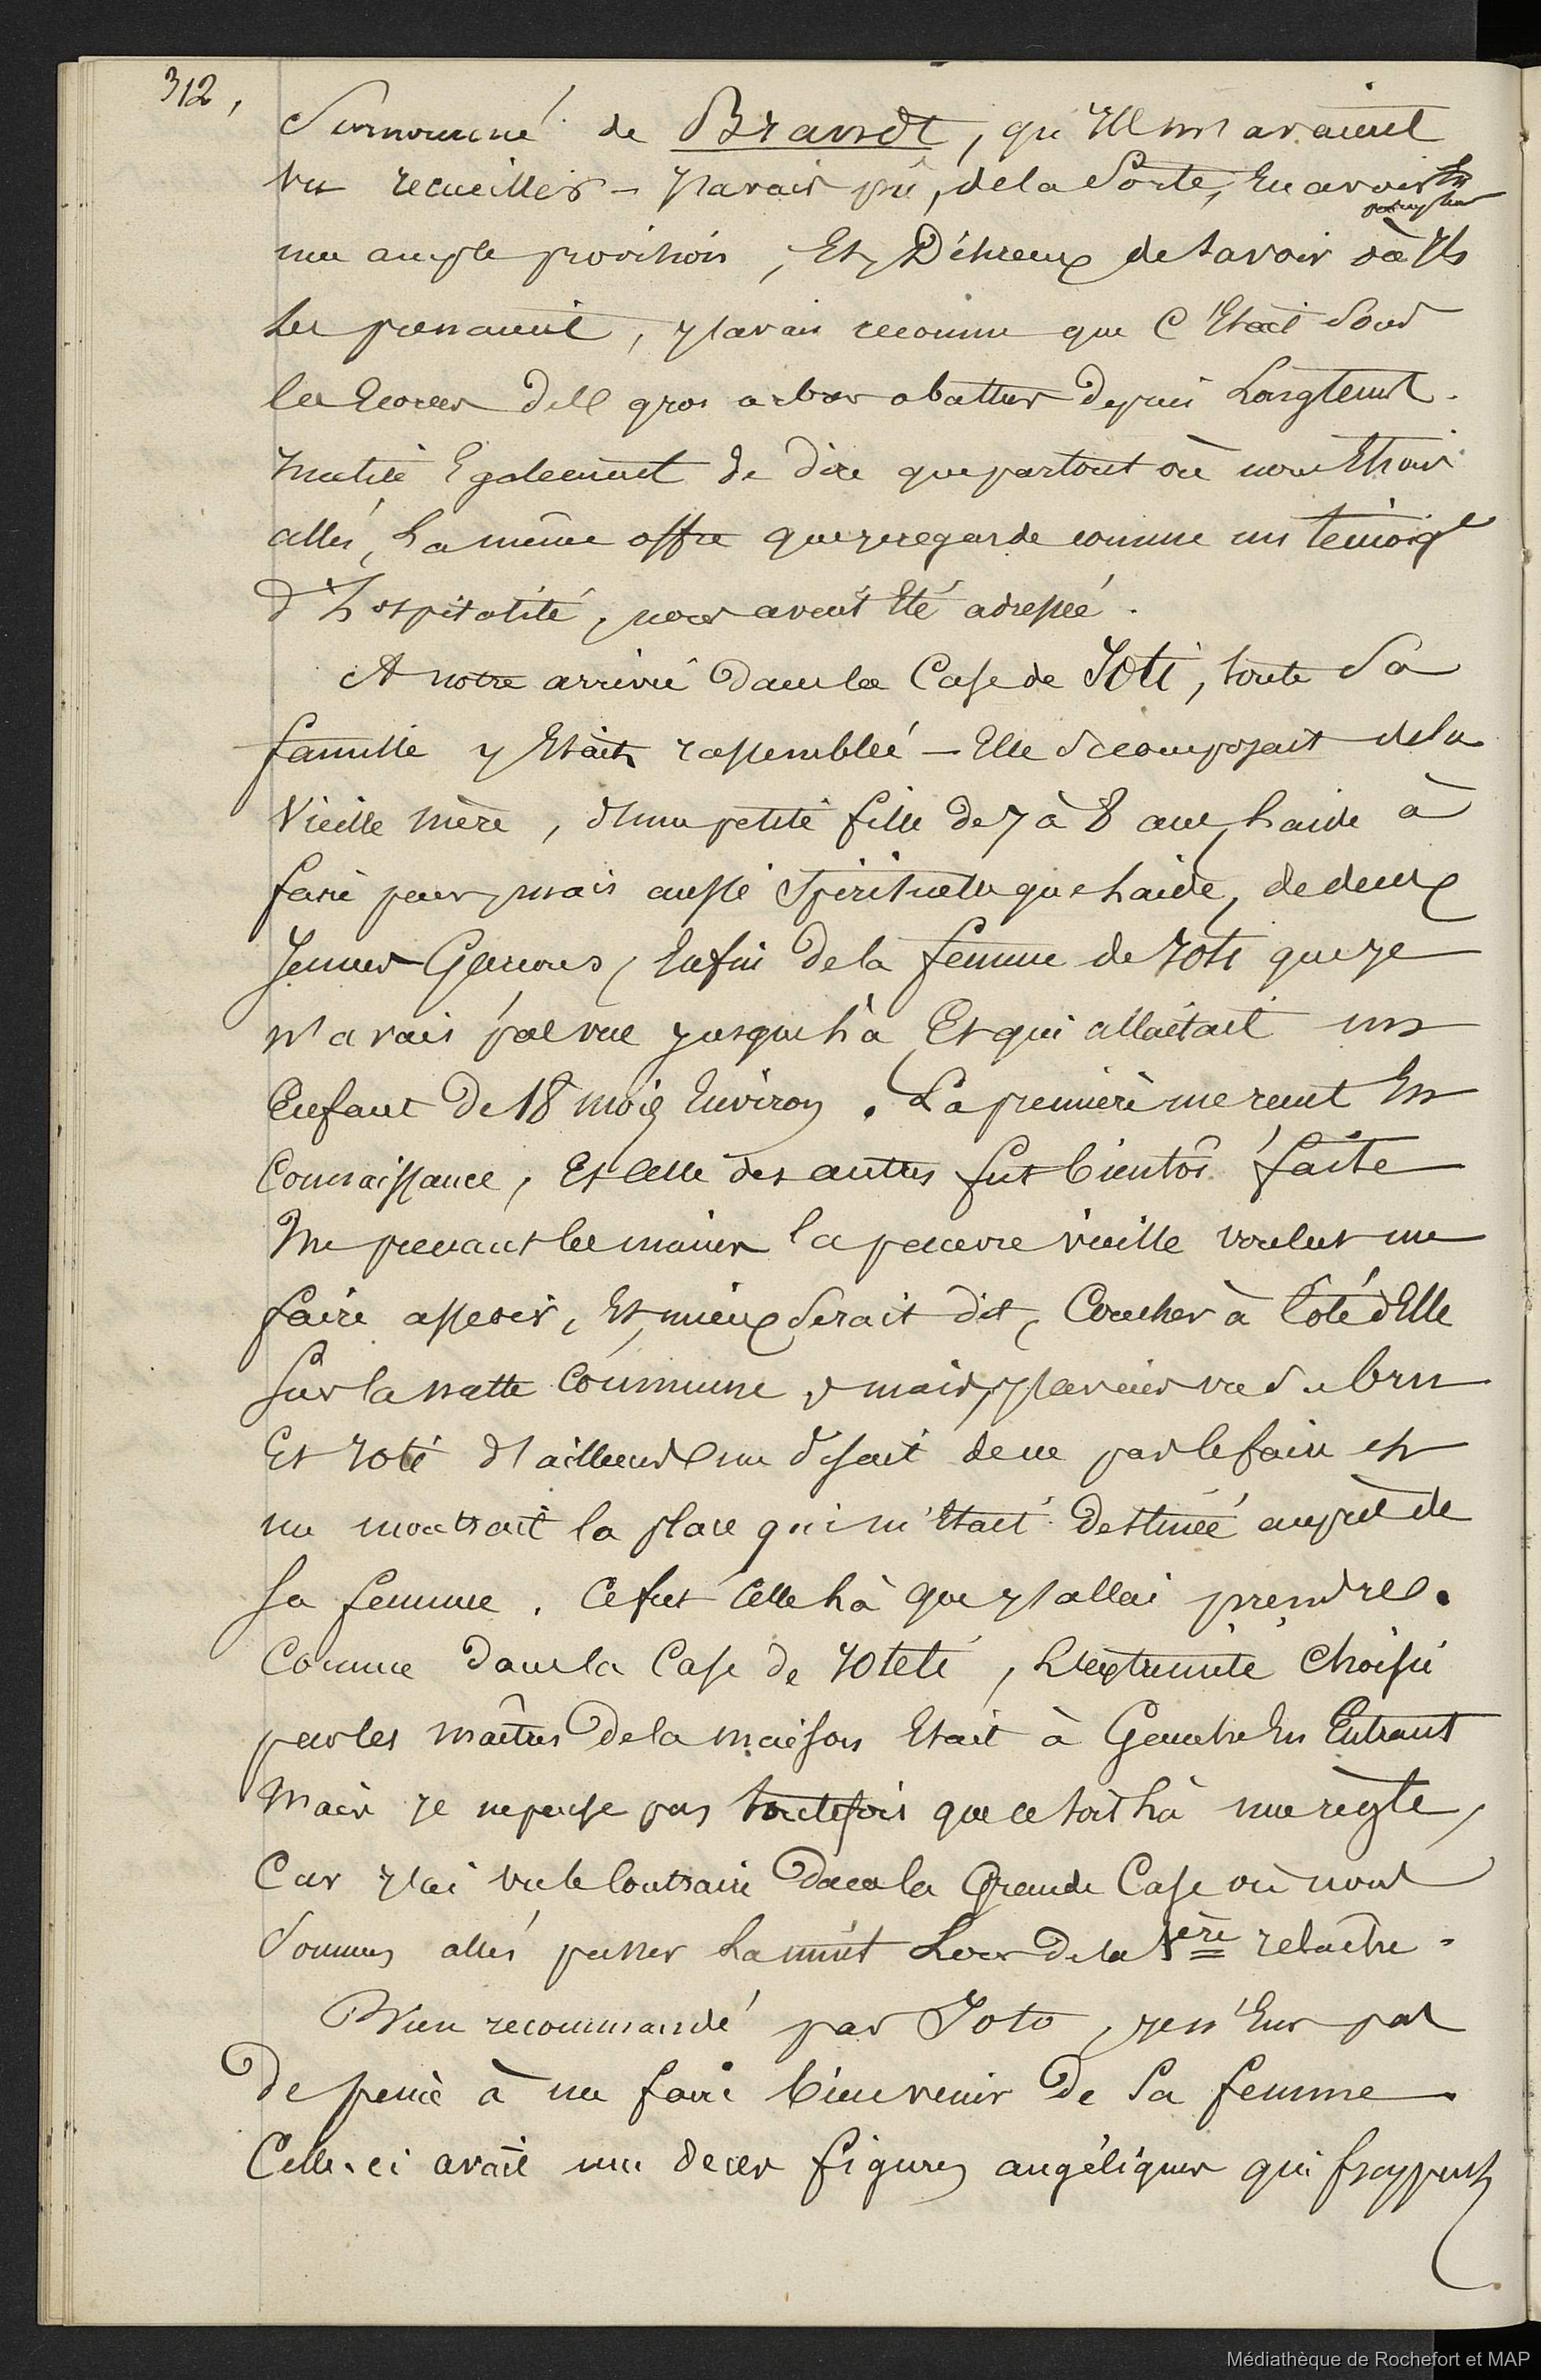 312,
Surnommé de Brandt, qu'Ils m'avaient
vu recueillir – J'avais pû, de la Sorte, En avoir
une ample provision, Et, Désireux de savoir où Ils
les prenaient, j'avais reconnu que C'Etait Sous
les Ecorces des gros arbres abattus Depuis Longtems.
Inutile Egalement de dire que partout où nous Etions
allés, La même offre que je regarde comme un témoige
d'hospitalité, nous avait Eté adressée.
A notre arrivée Dans la Case de Toti, toute Sa
famille y Etait rassemblée – Elle Se composait de la
Vieille mère, d'une petite fille de 7 à 8 ans, Laide à
faire peur, mais aussi Spirituelle que Laide, de deux
Jeunes Garçons, Enfin de la femme de Toti que je
n'avais pas vue jusque là Et qui allaitait un
Enfant De 18 mois Environ. La première me reçut En
Connaissance, Et Celle des autres fut bientôt faite
Me prenant les mains la pauvre vieille voulut me
faire asseoir, Et, mieux Serait dit, Coucher à Coté d'Elle
Sur la natte Commune, mais j'avais vu
Et Toti d'ailleurs me
me montrait la place qui m'Etait Destinée auprès de
Sa femme. Ce fut Celle là que j'allai prendre.
Comme Dans la Case de Toteté, L'extrémité Choisie
par les maîtres De la maison Etait à Gauche En Entrant
Mais je ne pense pas toutefois que ce soit là une règle,
Car j'ai vu le Contraire Dans la Grande Case où nous
Sommes allés passer La nuit Lors De la 1ère relache.
Bien recommandé par Toto, je n'Eus pas
De peine à me faire bien venir De Sa femme
Celle-ci avait une de ces figures angéliques qui frappent
Médiathèque de Rochefort et MAP